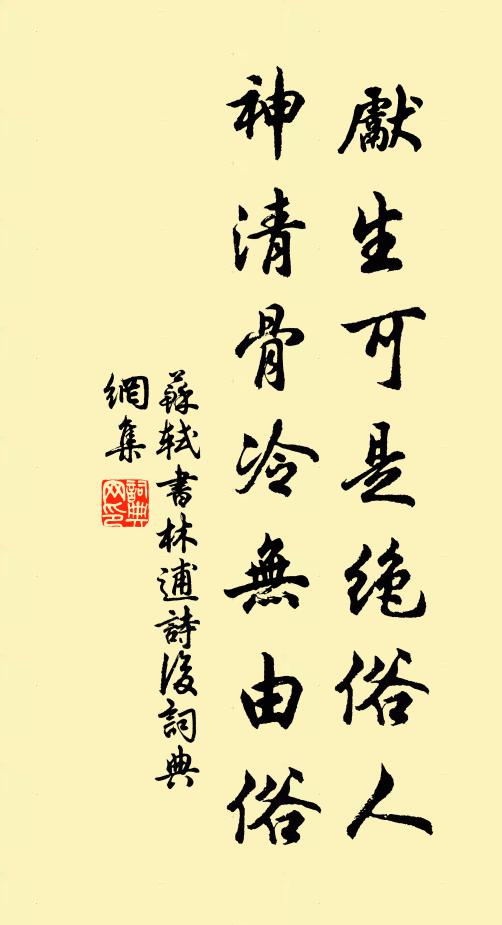 獻生可是絶俗人
神清骨冷無由俗
蘇軾書林逋詩後詞典
網集
詞典
网印